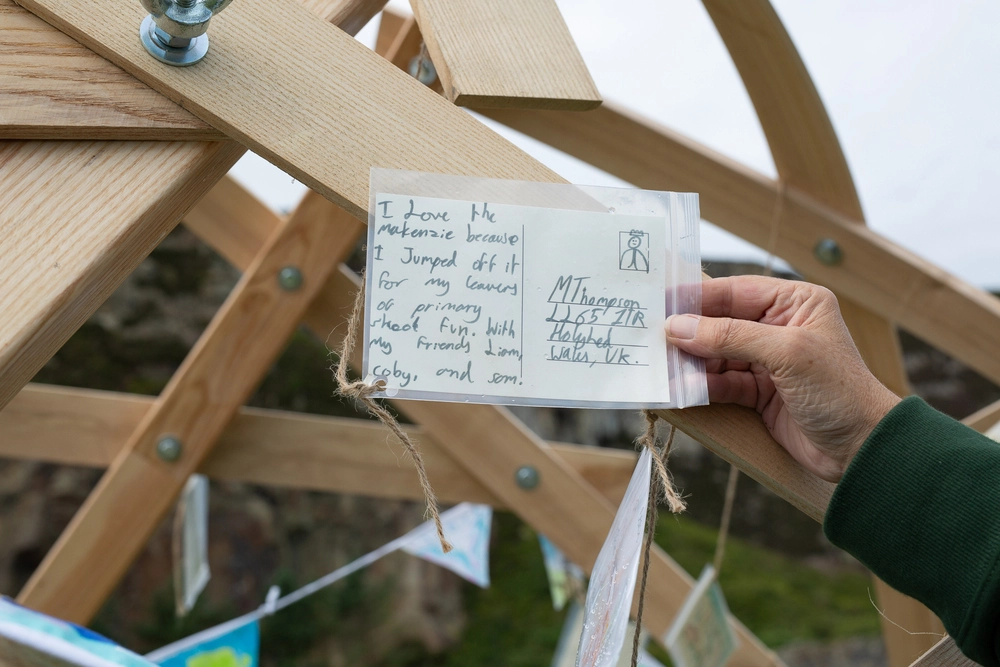 I Love the
makenzie because
I Jumped off it
for my leavers
of primary
shool fun. With
my friends Liam,
coby, and sam.
MThompson
LL65 1TR
Holyhed
Wales, UK.